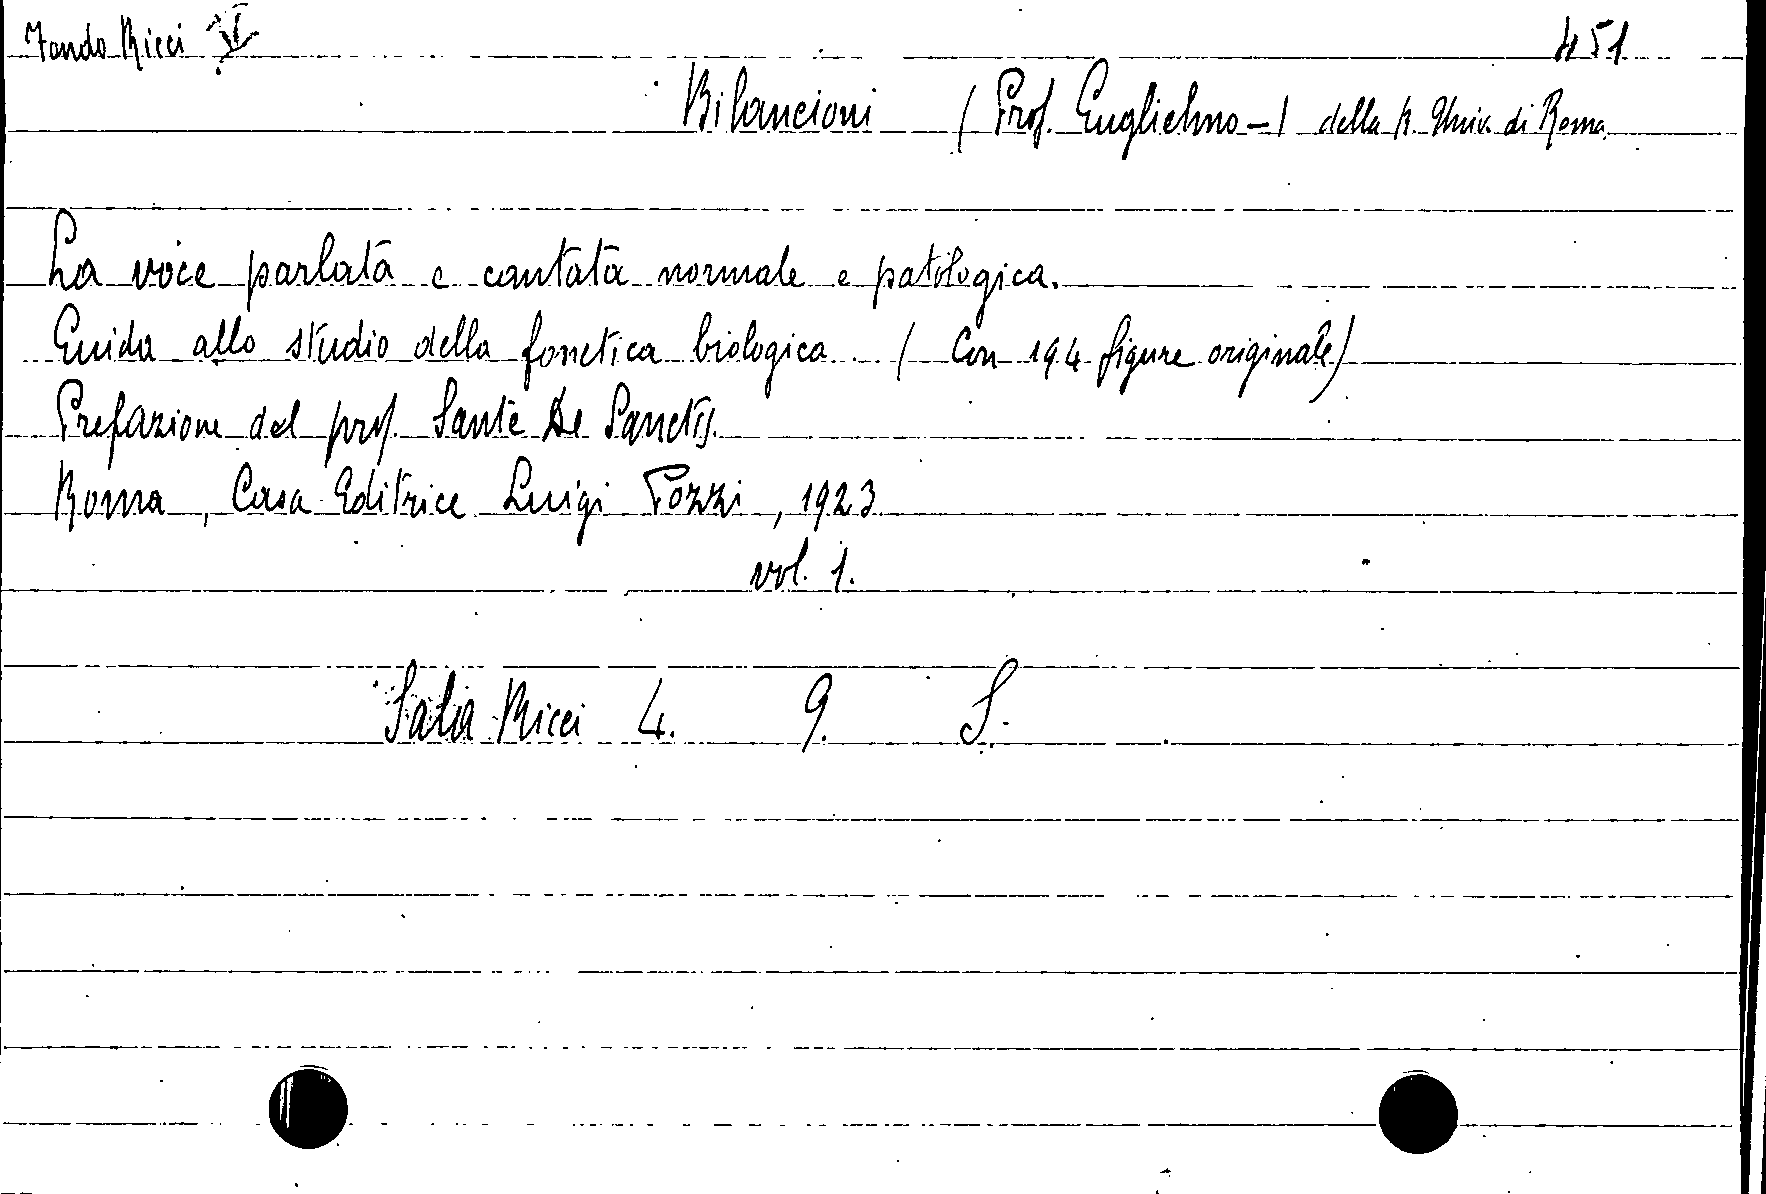 Fondo Ricci VI 451
Bilancioni (Prof. Guglielmo -) della R. Univ. di Roma
La voce parlata e cantata normale e patologica.
Guida allo studio della fonetica biologica (Con 194 figure originale)
Prefazione del prof. Sante De Sanctis.
Roma, Casa Editrice Luigi Pozzi, 1923
vol. 1.
Sala Ricci 4. 9. S.